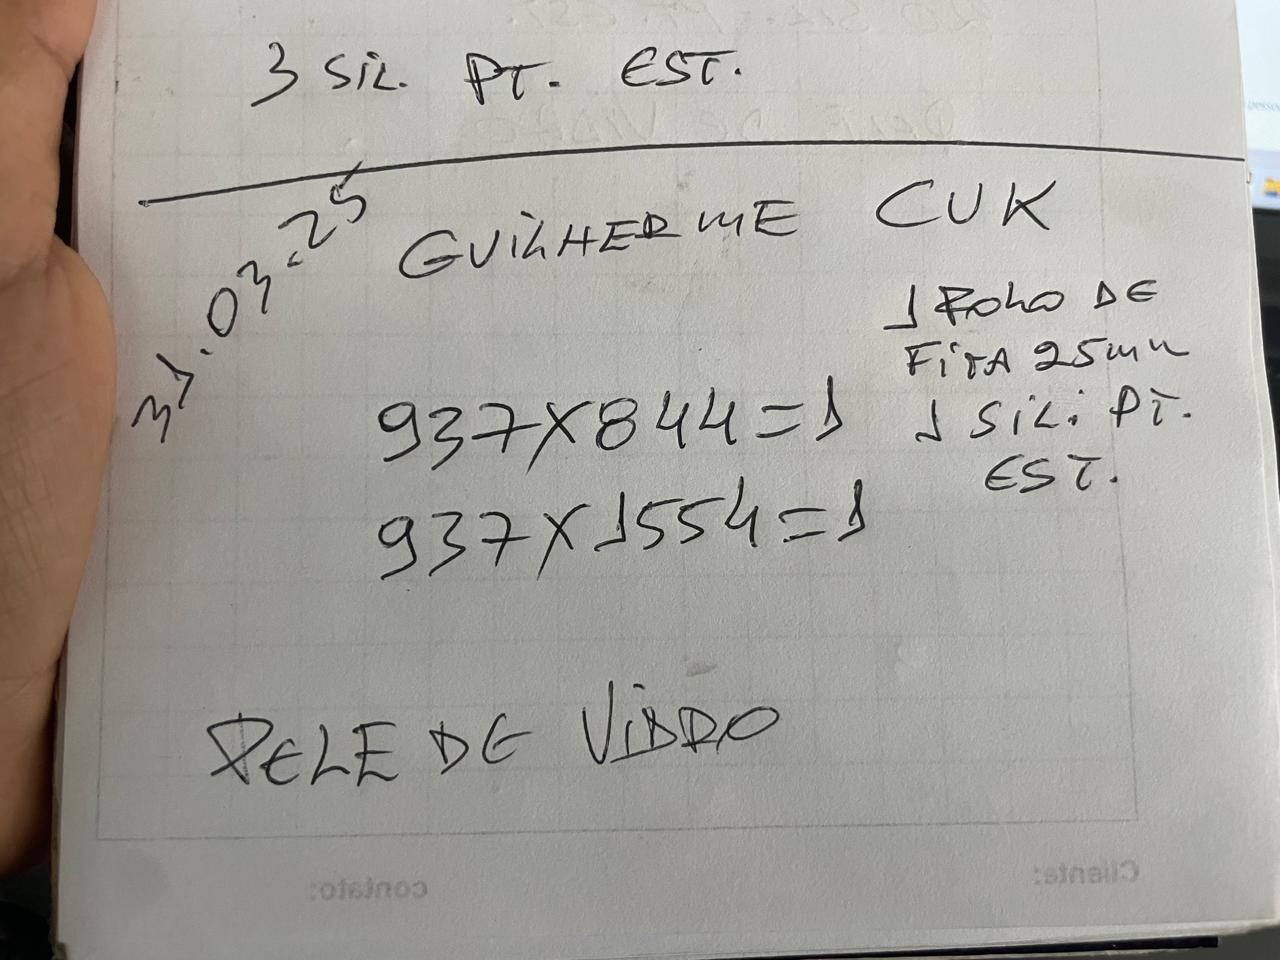 3 SIL. PT. EST.
31.03.25
GUILHERME CUK
1 ROLO DE
FITA 25mm
937X844=1
1 SIL. PT.
EST.
937X1554=1
PELE DE VIDRO
contato:
Cliente: